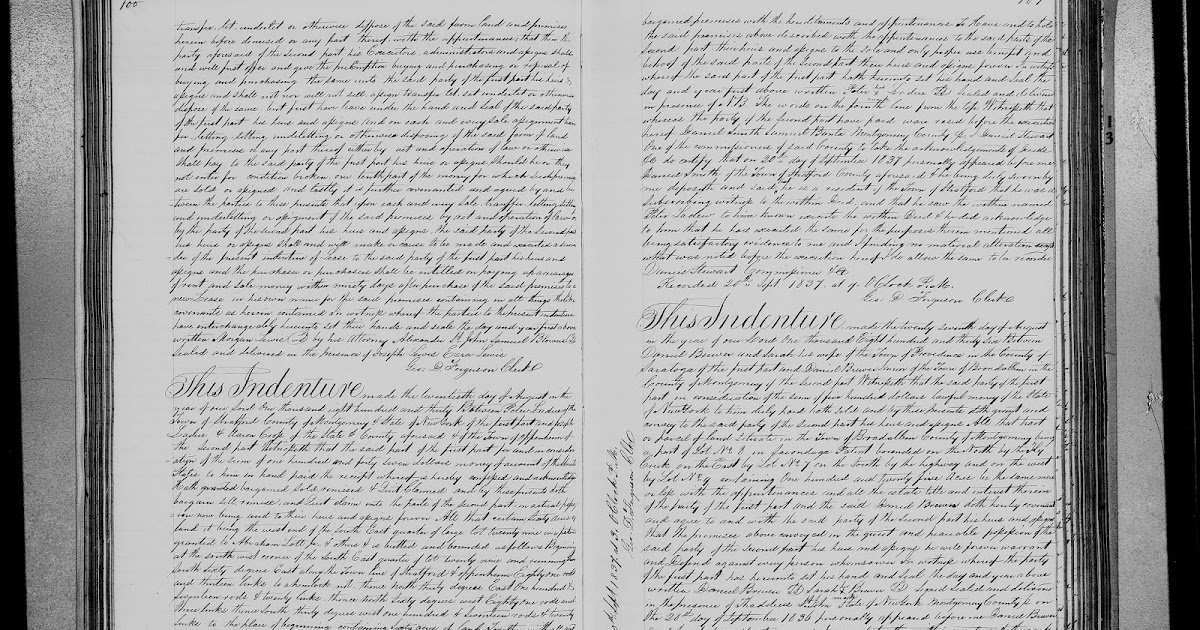 100
transfer let undelet or otherwise dispose of the said farm land and premises
herein before demised or any part thereof with the appurtenances that then the
party aforesaid of the second part his Executors administrators and assigns shall
and will first offer and give the preemption buying and purchasing or refusal of
buying and purchasing the same unto the said party of the first part his heirs &
assigns and shall not nor will not sell assign transfer let set undelet or otherwise
dispose of the same but first have leave under the hand and seal of the said party
of the first part his heirs and assigns and on each and every sale assignment
for letting setting undeletting or otherwise disposing of the said farm of land
and premises or any part thereof either by act and operation of law or otherwise
shall pay to the said party of the first part his heirs or assigns should he or they
not enter for condition broken one tenth part of the money for which such premises
are sold or assigned and lastly it is further covenanted and agreed by and be
tween the parties to these presents that upon each and every sale transfer letting setting
and undeletting or assignment of the said premises by act and operation of law or
by the party of the second part his heirs and assigns the said party of the second part
his heirs or assigns shall and will make or cause to be made and executed a surren
der of the present indenture of Lease to the said party of the first part his heirs and
assigns and the purchaser or purchasers shall be entitled on paying up arrearages
of rent and sale money within ninety days after purchase of the said premises to a
new Lease in his own name for the said premises containing in all things the like
covenants as herein contained In witness whereof the parties to the present indenture
have interchangeably hereunto set their hands and seals the day and year first above
written Morgan Lewis LS by his Attorney Alexander St John Samuel Brewer LS
Sealed and delivered in the presence of Joseph Lewis Ezra Lewis
Geo. D. Ferguson Clerk
This Indenture made the twentieth day of August in the
year of our Lord One thousand eight hundred and thirty Between Peter Ladue of the
Town of Stratford County of Montgomery & State of New York of the first part and Joseph
Ladue & Aaron Cross of the State & County aforesaid & of the Town of Oppenheim of
the second part Witnesseth that the said party of the first part for and in consider
ation of the sum of one hundred and forty seven dollars money of account of the United
States to him in hand paid the receipt whereof is hereby confessed and acknowledged
Hath granted bargained sold remised & Quit Claimed and by these presents doth
bargain sell remise and Quit claim unto the parties of the second part in actual posses
ion now being and to their heirs and assigns forever All that certain sixty acres of
land it being the west end of the south East quarter of large lot twenty nine in a patent
granted to Abraham Lott jr & others & is butted and bounded as follows Beginning
at the south west corner of the South East quarter of lot twenty nine and running
South sixty degrees East along the town line of Stratford & Oppenheim Eighty one rods
and thirteen links to a hemlock st. thence North thirty degrees East One hundred &
seventeen rods & twenty links thence North sixty degrees west Eighty one rods and
three links thence South thirty degrees west one hundred & seventeen rods & twenty
links to the place of beginning containing sixty acres of land
bargained premises with the hereditaments and appurtenances To Have and to hold
the said premises above described with the appurtenances to the said parties of the
Second part their heirs and assigns to the sole and only proper use benefit and
behoof of the said parties of the second part their heirs and assigns forever In witness
whereof the said party of the first part hath hereunto set his hand and seal the
day and year first above written Peter Ladue LS Sealed and delivered
in presence of N.B. The words on the fourth line from the top Witnesseth that
whereas the party of the second part have paid was rased before the execution
hereof Daniel Smith Samuel Banta Montgomery County ss I Daniel Stewart
One of the commissioners of said County to take the acknowledgments of Deeds
&c do certify that on 20th day of September 1837 personally appeared before me
Daniel Smith of the Town of Stratford County aforesaid & he being duly sworn by
me deposeth and said he is a resident of the Town of Stratford that he was a
subscribing witness to the within Deed, and that he saw the within named
Peter Ladue to him known execute the within Deed & he did acknowledge
to him that he has executed the same for the purposes therein mentioned all
being satisfactory evidence to me and I finding no material alteration except
what was noted before the execution hereof I do allow the same to be recorded
Daniel Stewart Commissioner &c
Recorded 20th Sept 1837 at 9 O'Clock P.M.
Geo. D. Ferguson Clerk
This Indenture made the twenty seventh day of August
in the year of our Lord One thousand Eight hundred and thirty six Between
Daniel Brewer and Sarah his wife of the Town of Providence in the County of
Saratoga of the first part and Daniel Brewer Junior of the Town of Broadalbin in the
County of Montgomery of the second part Witnesseth that the said party of the first
part in consideration of the sum of five hundred dollars lawful money of the State
of New York to him duly paid hath sold and by these presents doth grant and
convey to the said party of the second part his heirs and assigns All that tract
or parcel of land situate in the Town of Broadalbin County of Montgomery being
a part of Lot No 8 in Sacondaga Patent bounded on the North by the
Creek on the East by Lot No 7 on the South by the highway and on the west
by Lot No 9 containing One hundred and twenty five Acres be the same more
or less with the appurtenances and all the estate title and interest therein
of the party of the first part and the said Daniel Brewer doth hereby covenant
and agree to and with the said party of the second part his heirs and assigns
that the premises above conveyed in the quiet and peaceable possession of the
said party of the Second part his heirs and assigns he will forever warrant
and Defend against every person whomsoever In witness whereof the party
of the first part has hereunto set his hand and seal the day and year above
written Daniel Brewer LS Sarah Brewer LS Signed sealed and delivered
in the presence of Thaddeus St John State of New York Montgomery County ss on
the 20th day of September 1836 personally appeared before me Daniel Brewer
Sept 1837 at 9 O'Clock P.M.
Geo. D. Ferguson Clerk
13